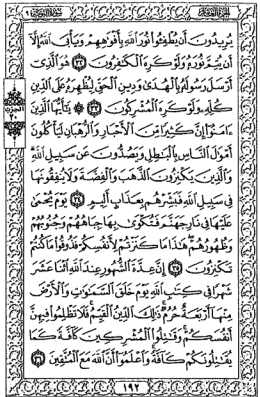 يُرِيدُونَ أَن يُطْفِـُٔوا۟ نُورَ ٱللَّهِ بِأَفْوَٰهِهِمْ وَيَأْبَى ٱللَّهُ إِلَّآ
أَن يُتِمَّ نُورَهُۥ وَلَوْ كَرِهَ ٱلْكَٰفِرُونَ ٣٢ هُوَ ٱلَّذِىٓ
أَرْسَلَ رَسُولَهُۥ بِٱلْهُدَىٰ وَدِينِ ٱلْحَقِّ لِيُظْهِرَهُۥ عَلَى ٱلدِّينِ
كُلِّهِۦ وَلَوْ كَرِهَ ٱلْمُشْرِكُونَ ٣٣ ۞ يَٰٓأَيُّهَا ٱلَّذِينَ
ءَامَنُوٓا۟ إِنَّ كَثِيرًا مِّنَ ٱلْأَحْبَارِ وَٱلرُّهْبَانِ لَيَأْكُلُونَ
أَمْوَٰلَ ٱلنَّاسِ بِٱلْبَٰطِلِ وَيَصُدُّونَ عَن سَبِيلِ ٱللَّهِ
وَٱلَّذِينَ يَكْنِزُونَ ٱلذَّهَبَ وَٱلْفِضَّةَ وَلَا يُنفِقُونَهَا
فِى سَبِيلِ ٱللَّهِ فَبَشِّرْهُم بِعَذَابٍ أَلِيمٍ ٣٤ يَوْمَ يُحْمَىٰ
عَلَيْهَا فِى نَارِ جَهَنَّمَ فَتُكْوَىٰ بِهَا جِبَاهُهُمْ وَجُنُوبُهُمْ
وَظُهُورُهُمْ هَٰذَا مَا كَنَزْتُمْ لِأَنفُسِكُمْ فَذُوقُوا۟ مَا كُنتُمْ
تَكْنِزُونَ ٣٥ إِنَّ عِدَّةَ ٱلشُّهُورِ عِندَ ٱللَّهِ ٱثْنَا عَشَرَ
شَهْرًا فِى كِتَٰبِ ٱللَّهِ يَوْمَ خَلَقَ ٱلسَّمَٰوَٰتِ وَٱلْأَرْضَ
مِنْهَآ أَرْبَعَةٌ حُرُمٌ ذَٰلِكَ ٱلدِّينُ ٱلْقَيِّمُ فَلَا تَظْلِمُوا۟ فِيهِنَّ
أَنفُسَكُمْ وَقَٰتِلُوا۟ ٱلْمُشْرِكِينَ كَآفَّةً كَمَا
يُقَٰتِلُونَكُمْ كَآفَّةً وَٱعْلَمُوٓا۟ أَنَّ ٱللَّهَ مَعَ ٱلْمُتَّقِينَ ٣٦
١٩٢